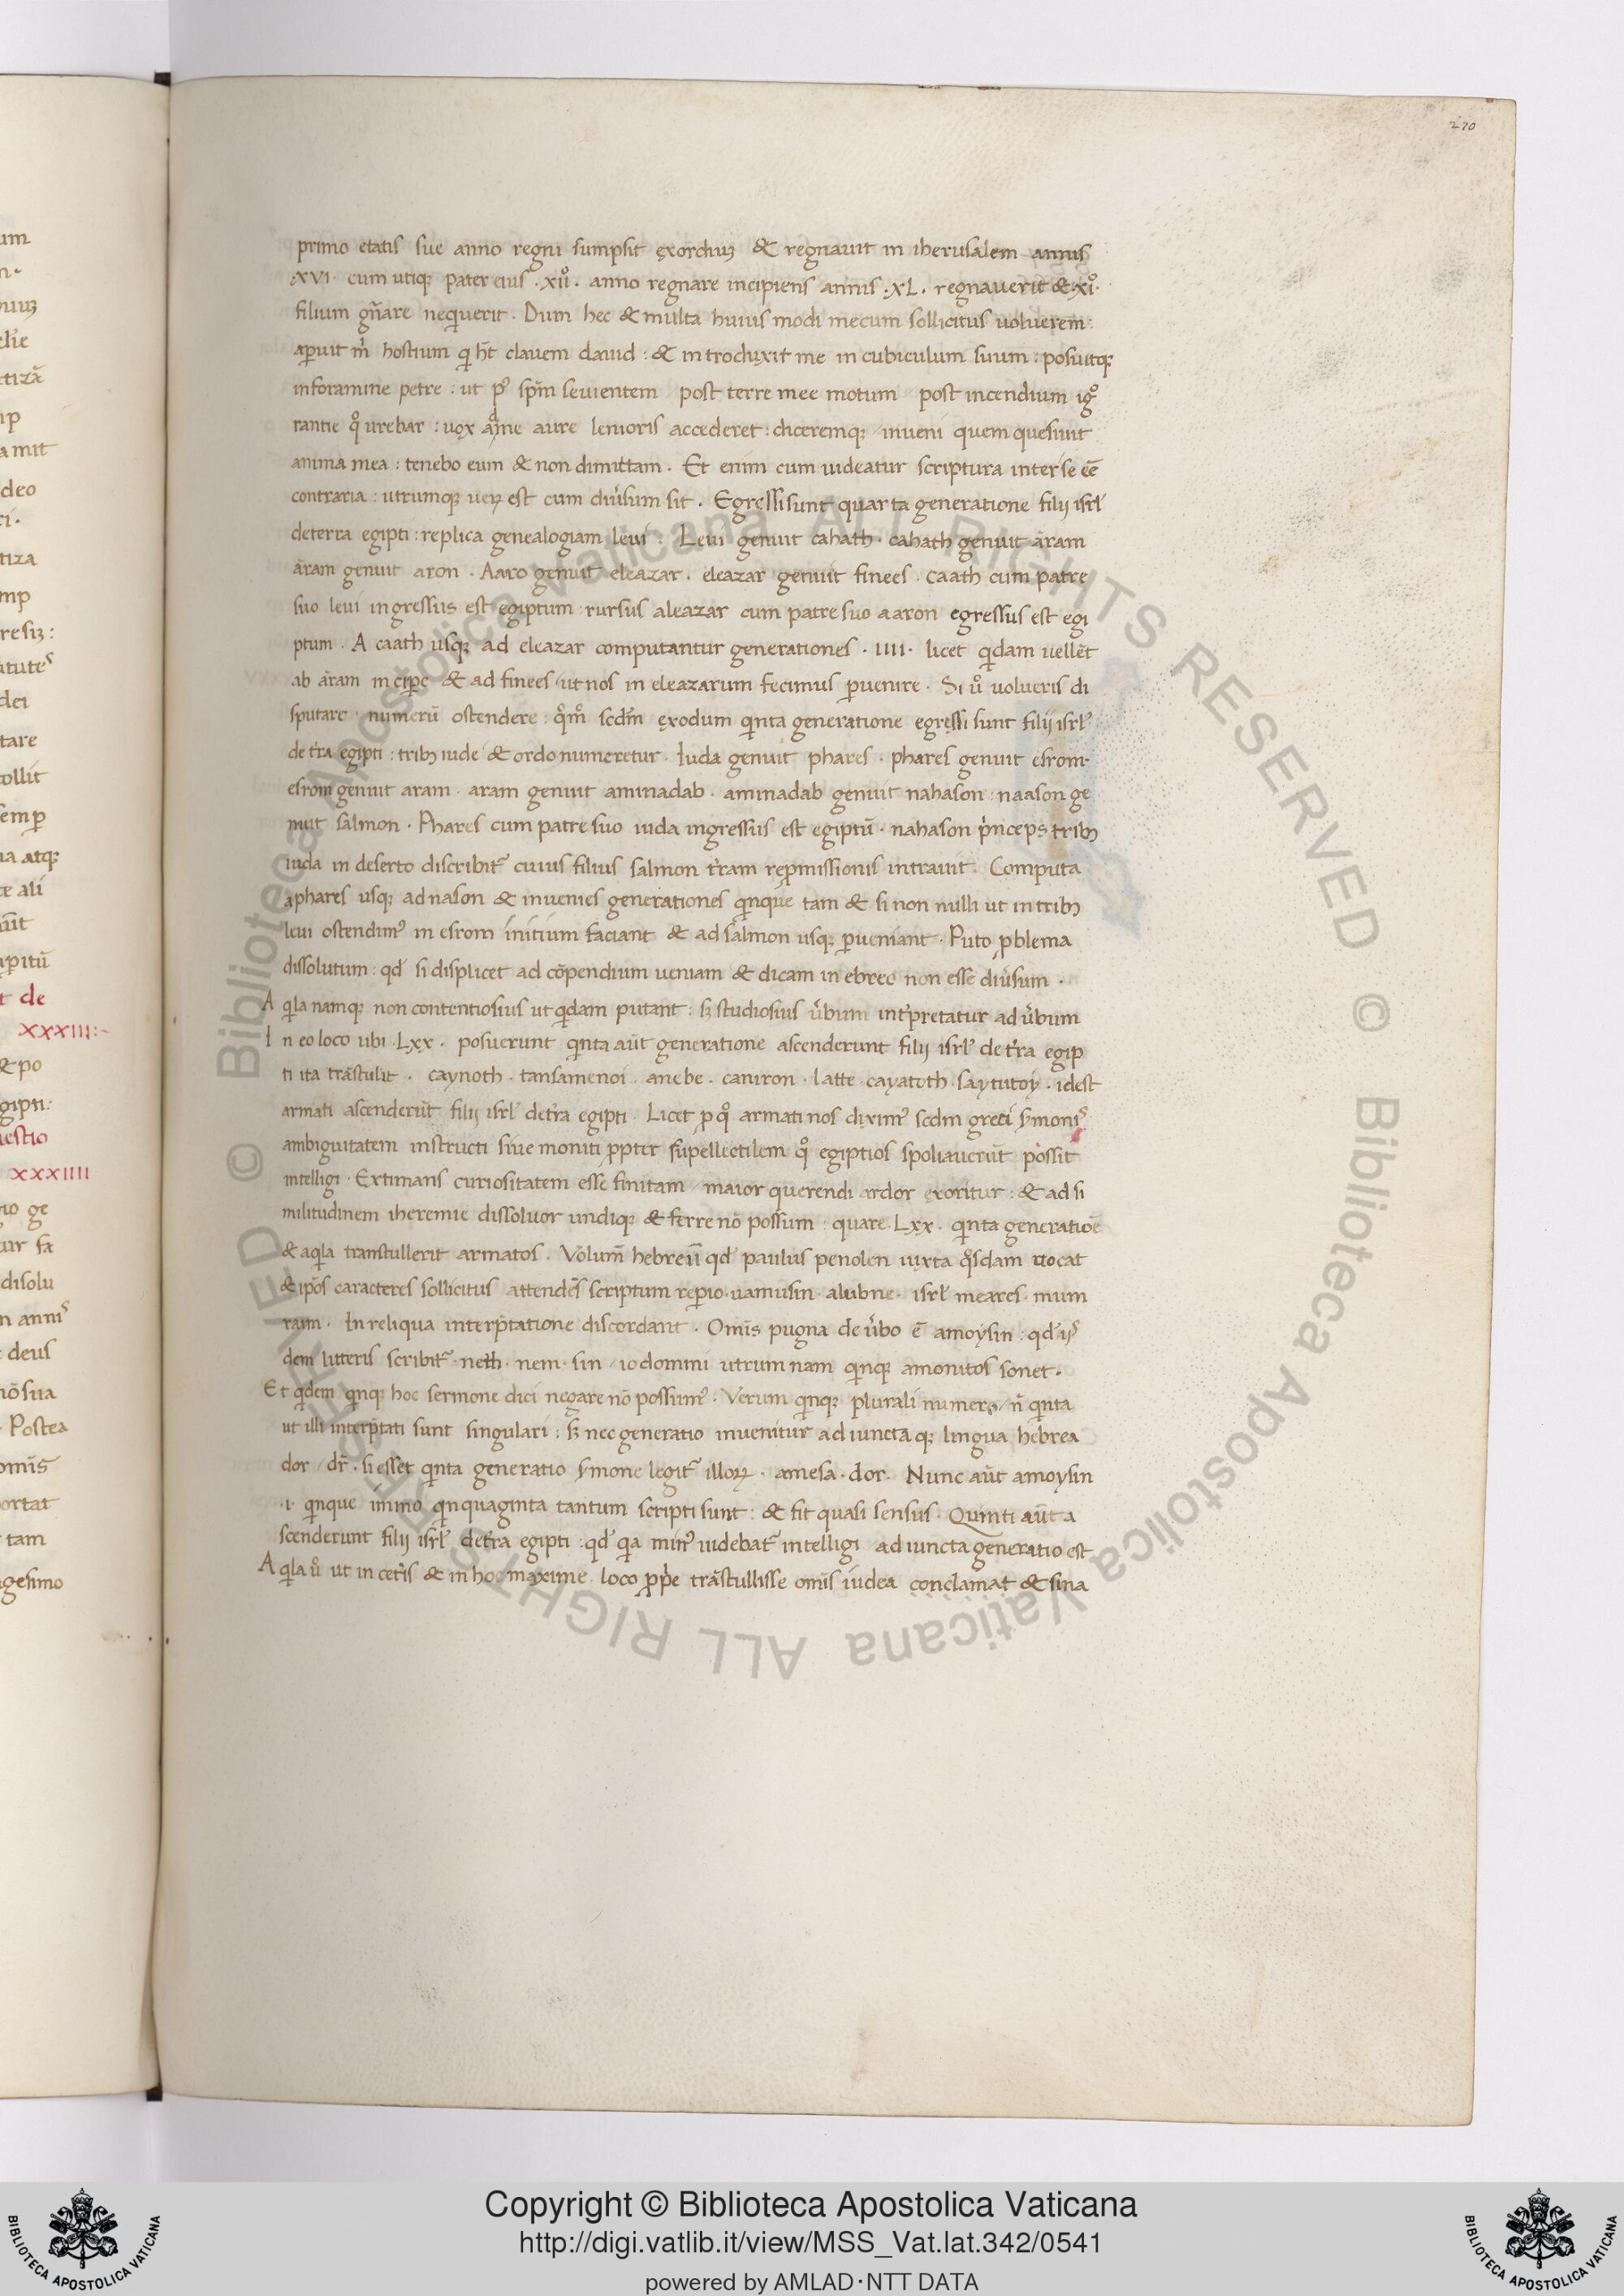 270
primo etatis sue anno regni sumpsit exordiuꝫ & regnauit in iherusalem annis
.xvi. cum utiqꝫ pater eius .xıı̊. anno regnare incipiens annis .xL. regnauerit & .xı̊.
filium gn̄are neqiuerit. Dum hec & multa huius modi mecum sollicitus uoluerem:
aꝑuit m̍ hostium q̍ ht̄ clauem dauid: & introduxit me in cubiculum suum: posuitqꝫ
inforamine petre: ut pꝰ spm̄ seuientem post terre mee motum post incendium ig̊
rantie q̊ urebar: uox aurę lenioris accederet: diceremqꝫ inueni quem quesiuit
anima mea: tenebo eum & non dimittam. Et enim cum uideatur scriptura interse eē
contraria: utrumqꝫ ueꝝ est cum diu̍sum sit. Egressi sunt quarta generatione filij isrl̍
deterra egipti: replica genealogiam leui. Leui genuit cahath. cahath genuit aram
aram genuit aron. Aaro genuit eleazar. eleazar genuit finees. Caath cum patre
suo leui ingressus est egiptum: rursus aleazar cum patre suo aaron egressus est egi
ptum. A caath usqꝫ ad eleazar computantur generationes .IIII. licet q̍dam uellēt
ab aram incipe & ad finees ut nos in eleazarum fecimus ꝑuenire. Si u̍ uolueris di
sputare numerū ostendere: q̊m̊ scdm̄ exodum q̍nta generatione egressi sunt filij isrl̍
de tr̄a egipti: tribꝫ iude & ordo numeretur. Iuda genuit phares. phares genuit esrom.
esrom genuit aram. aram genuit aminadab. aminadab genuit nahason. naason ge
nuit salmon. Phares cum patre suo iuda ingressus est egiptū. nahason p̍nceps tribꝫ
iuda in deserto discribit᷑ cuius filius salmon tr̄am repromissionis intrauit. Computa
aphares usqꝫ ad nason & inuenies generationes q̍nque tam & si non nulli ut in tribꝫ
leui ostendimꝰ in esrom initium faciant & ad salmon usqꝫ ꝑueniant. Puto ꝓblema
dissolutum: qd̍ si displicet ad cōpendium ueniam & dicam in ebreo non esse diu̍sum.
Aq̍la namqꝫ non contentiosius ut q̍dam putant: sꝫ studiosius u̍bum int̍pretatur ad u̍bum
In eo loco ubi .Lxx. posuerunt q̍nta aūt generatione ascenderunt filij isrl̍ de tr̄a egip
ti ita trāstulit. caynoth. tansamenoi. anebe. caniron. latte. cayatoth. saytutoy. idest
armati ascenderūt filij isrl̍ detr̄a egipti. Licet ꝓ q̊ armati nos diximꝰ scdm greci s̍monis
ambiguitatem instructi siue moniti ꝓpter supellectilem q̊ egiptios spoliauerūt possit
intelligi. Extimans curiositatem esse finitam maior querendi ardor exoritur: & ad si
militudinem iheremie dissoluor undiqꝫ & ferre nō possum: quare .Lxx. q̍nta generatioē
& aq̍la transtullerit armatos. Volum̄ hebreū qd̍ paulus penolen iuxta q̊sdam uocat
& ip̄os caracteres sollicitus attendēs scriptum reꝑio. uamusin. alubne. isrl̍ meares. mum
raim. In reliqua interp̄tatione discordant. Omīs pugna de u̍bo ē amoysin: qd̍ iꝰ
dem litteris scribit᷑. neth. nem. sin. iodomni utrum nam q̍nqꝫ amonitos sonet.
Et q̍dem q̍nqꝫ hoc sermone dici negare nō possumꝰ. Verum q̍nqꝫ plurali numero, n̄ q̍nta
ut illi interp̄tati sunt singulari: sꝫ nec generatio inuenitur ad iuncta qꝫ lingua hebrea
dor dr̄. si esset q̍nta generatio s̍mone legit᷑ illoꝝ. amesa. dor. Nunc aūt amoysin
.i. q̍nque immo q̍nquaginta tantum scripti sunt: & fit quasi sensus. Quinti aūt a
scenderunt filij isrl̍ detr̄a egipti: qd̍ q̍a minꝰ uidebat᷑ intelligi ad iuncta generatio est
Aq̍la u̍ ut in cet̍is & in hoc maxime loco ꝓpe trāstullisse omīs iudea conclamat & sina
Copyright © Biblioteca Apostolica Vaticana
http://digi.vatlib.it/view/MSS_Vat.lat.342/0541
powered by AMLAD·NTT DATA